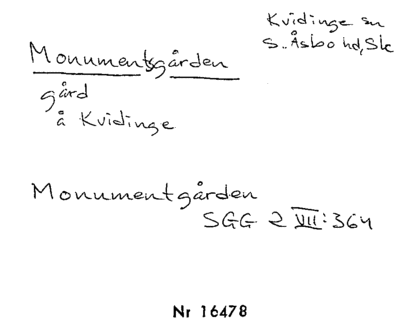 Kvidinge sn
S. Åsbo hd, Sk
Monumentsgården
gård
å Kvidinge
Monumentgården
SGG 2 VII:364
Nr 16478